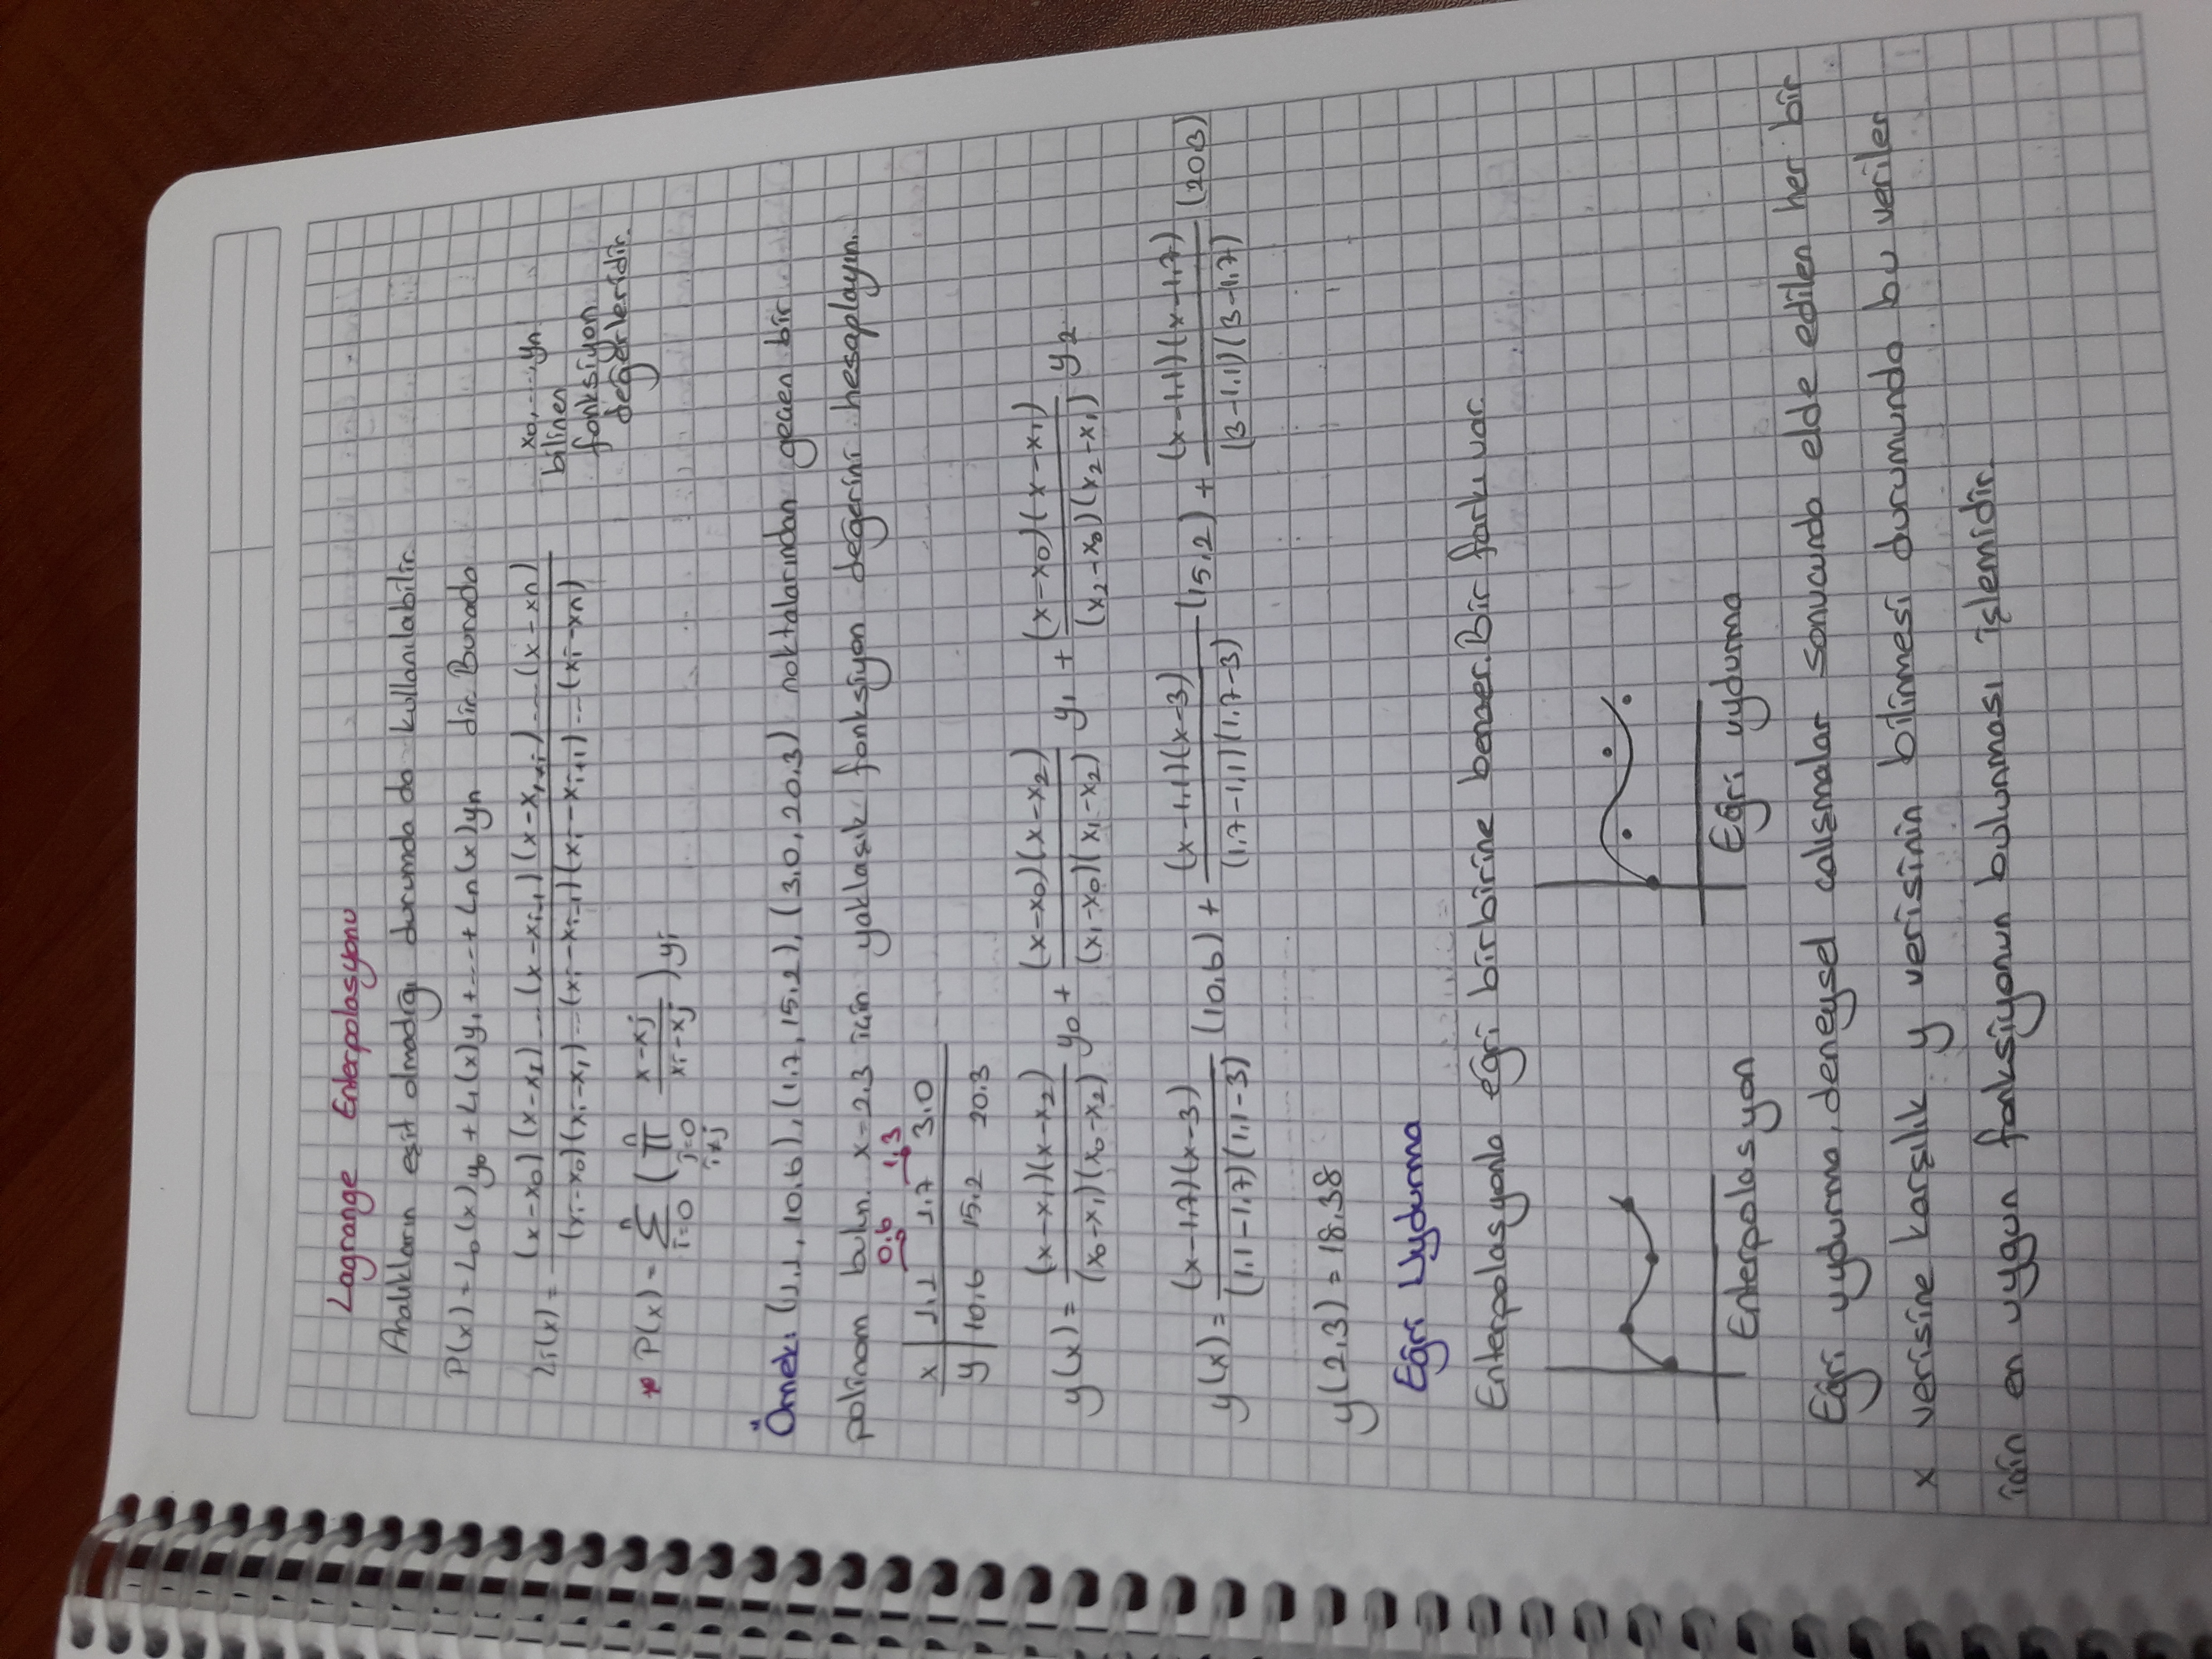 Lagrange Enterpolasyonu
Aralıkların eşit olmadığı durumda da kullanılabilir.
P(x) = L₀(x)y₀ + L₁(x)y₁ + ... + Ln(x)yn dir. Burada
Li(x) = (x-x₀)(x-x₁)...(x-xᵢ₋₁)(x-xᵢ₊₁)...(x-xn) / (xᵢ-x₀)(xᵢ-x₁)...(xᵢ-xᵢ₋₁)(xᵢ-xᵢ₊₁)...(xᵢ-xn)
x₀, ..., yn
bilinen
fonksiyon
değerleridir.
* P(x) = Σ i=0 n ( Π j=0 i≠j n (x-xj)/(xi-xj) ) yi
Örnek: (1.1, 10.6), (1.7, 15.2), (3.0, 20.3) noktalarından geçen bir
polinom bulun. x=2.3 için yaklaşık fonksiyon değerini hesaplayın.
0.6 1.3
x | 1.1 1.7 3.0
y | 10.6 15.2 20.3
y(x) = (x-x₁)(x-x₂)/(x₀-x₁)(x₀-x₂) y₀ + (x-x₀)(x-x₂)/(x₁-x₀)(x₁-x₂) y₁ + (x-x₀)(x-x₁)/(x₂-x₀)(x₂-x₁) y₂
y(x) = (x-1,7)(x-3)/(1,1-1,7)(1,1-3) (10,6) + (x-1,1)(x-3)/(1,7-1,1)(1,7-3) (15,2) + (x-1,1)(x-1,7)/(3-1,1)(3-1,7) (20,3)
y(2.3) = 18.38
Eğri Uydurma
Enterpolasyonla eğri birbirine benzer. Bir farkı var.
Enterpolasyon
Eğri uydurma
Eğri uydurma, deneysel çalışmalar sonucunda elde edilen her bir
x verisine karşılık y verisinin bilinmesi durumunda bu veriler
için en uygun fonksiyonun bulunması işlemidir.